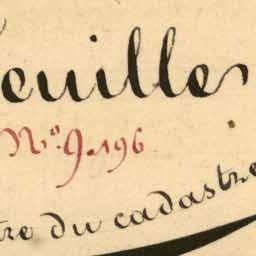 feuilles
N.º 9.196
tre du cadastre